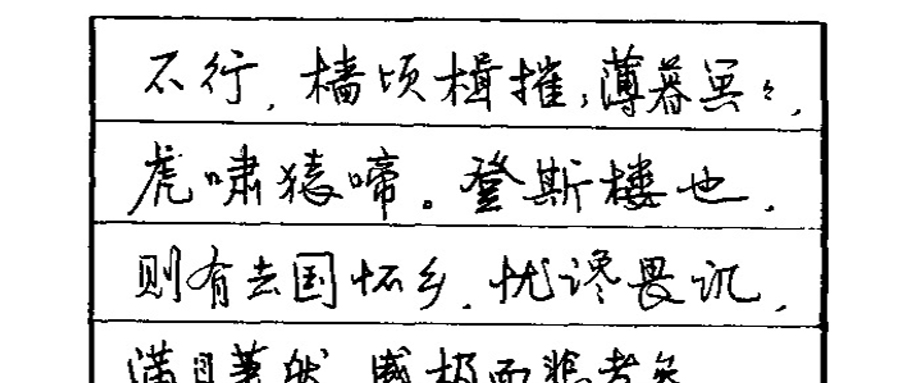 不行，樯顷楫摧；薄暮冥々，
虎啸猿啼。登斯楼也，
则有去国怀乡，忧谗畏讥，
满目萧然，感极而悲者矣